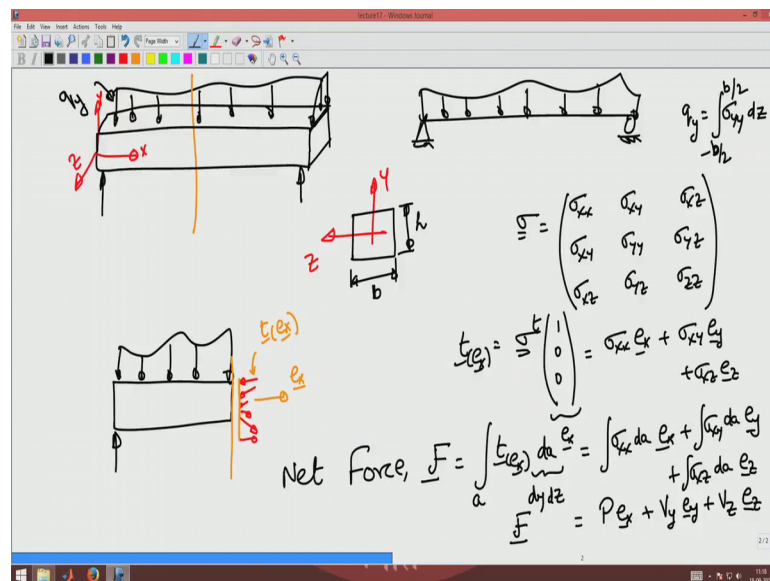 lecture11 - Windows Journal
File Edit View Insert Actions Tools Help
Page Width
B I
q_y
y
x
z
q_y = ∫_{-b/2}^{b/2} σ_yy dz
y
z
h
b
σ = ( σ_xx σ_xy σ_xz
σ_xy σ_yy σ_yz
σ_xz σ_yz σ_zz )
t(e_x)
e_x
t(e_x) = σ^t ( 1 0 0 ) = σ_xx e_x + σ_xy e_y
+ σ_xz e_z
Net Force, F = ∫_a t(e_x) da e_x = ∫ σ_xx da e_x + ∫ σ_xy da e_y
dydz
+ ∫ σ_xz da e_z
F = P e_x + V_y e_y + V_z e_z
2
2 / 2
11:18